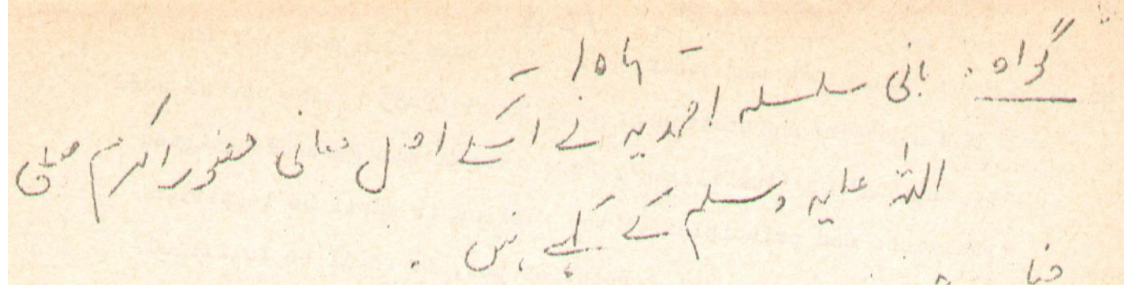 گواہ۔ بانی سلسلہ احمدیہ نے اسکے اصل معانی حضور اکرم صلی
اللہ علیہ وسلم کے کہے ہیں۔